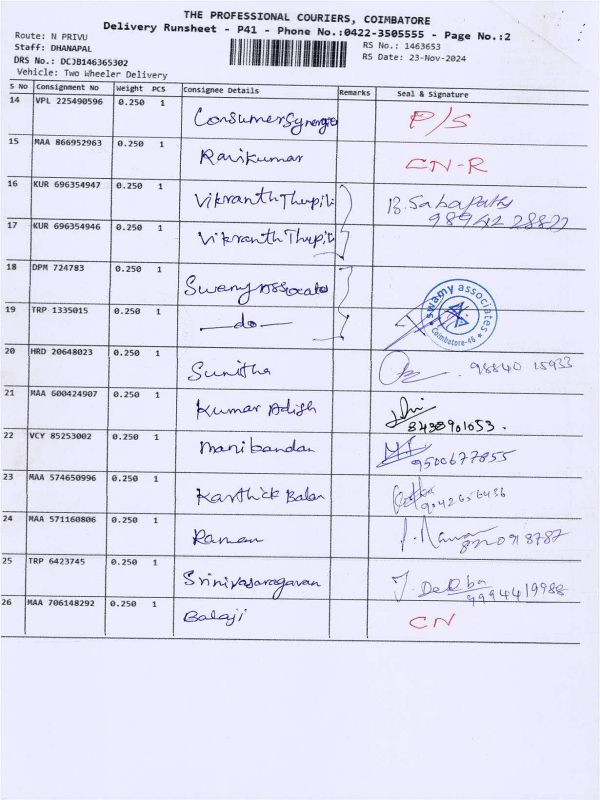 THE PROFESSIONAL COURIERS, COIMBATORE
Delivery Runsheet - P41 - Phone No.:0422-3505555 - Page No.:2
Route: N PRIVU
Staff: DHANAPAL
DRS No.: DCJB146365302
Vehicle: Two Wheeler Delivery
RS No.: 1463653
RS Date: 23-Nov-2024
S No Consignment No Weight PCS Consignee Details Remarks Seal & Signature
14 VPL 225490596 0.250 1 Consumer Synergie P/S
15 MAA 866952963 0.250 1 Ravikumar CN-R
16 KUR 696354947 0.250 1 Vikranth Thupili B. Sabapathy
98942 28822
17 KUR 696354946 0.250 1 Vikranth Thupili
18 DPM 724783 0.250 1 Swamy Associates
swamy associates
Coimbatore-46
19 TRP 1335015 0.250 1 —do—
20 HRD 20648023 0.250 1 Sunitha 98840 15933
21 MAA 600424907 0.250 1 Kumar Adish
8438901053.
22 VCY 85253002 0.250 1 Manibandan
9500677855
23 MAA 574650996 0.250 1 Karthick Balan
9042656436
24 MAA 571160806 0.250 1 Raman
8220918787
25 TRP 6423745 0.250 1 Srinivasaragavan
9994419988
26 MAA 706148292 0.250 1 Balaji CN